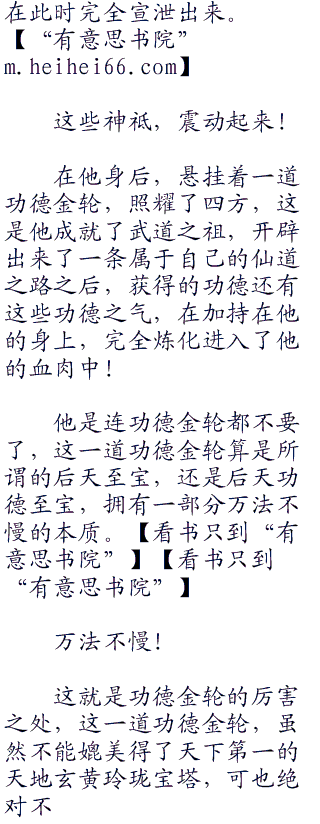 在此时完全宣泄出来。
【“有意思书院”
m.heihei66.com】
这些神祇，震动起来！
在他身后，悬挂着一道
功德金轮，照耀了四方，这
是他成就了武道之祖，开辟
出来了一条属于自己的仙道
之路之后，获得的功德还有
这些功德之气，在加持在他
的身上，完全炼化进入了他
的血肉中！
他是连功德金轮都不要
了，这一道功德金轮算是所
谓的后天至宝，还是后天功
德至宝，拥有一部分万法不
慢的本质。【看书只到“有
意思书院”】【看书只到
“有意思书院”】
万法不慢！
这就是功德金轮的厉害
之处，这一道功德金轮，虽
然不能媲美得了天下第一的
天地玄黄玲珑宝塔，可也绝
对不